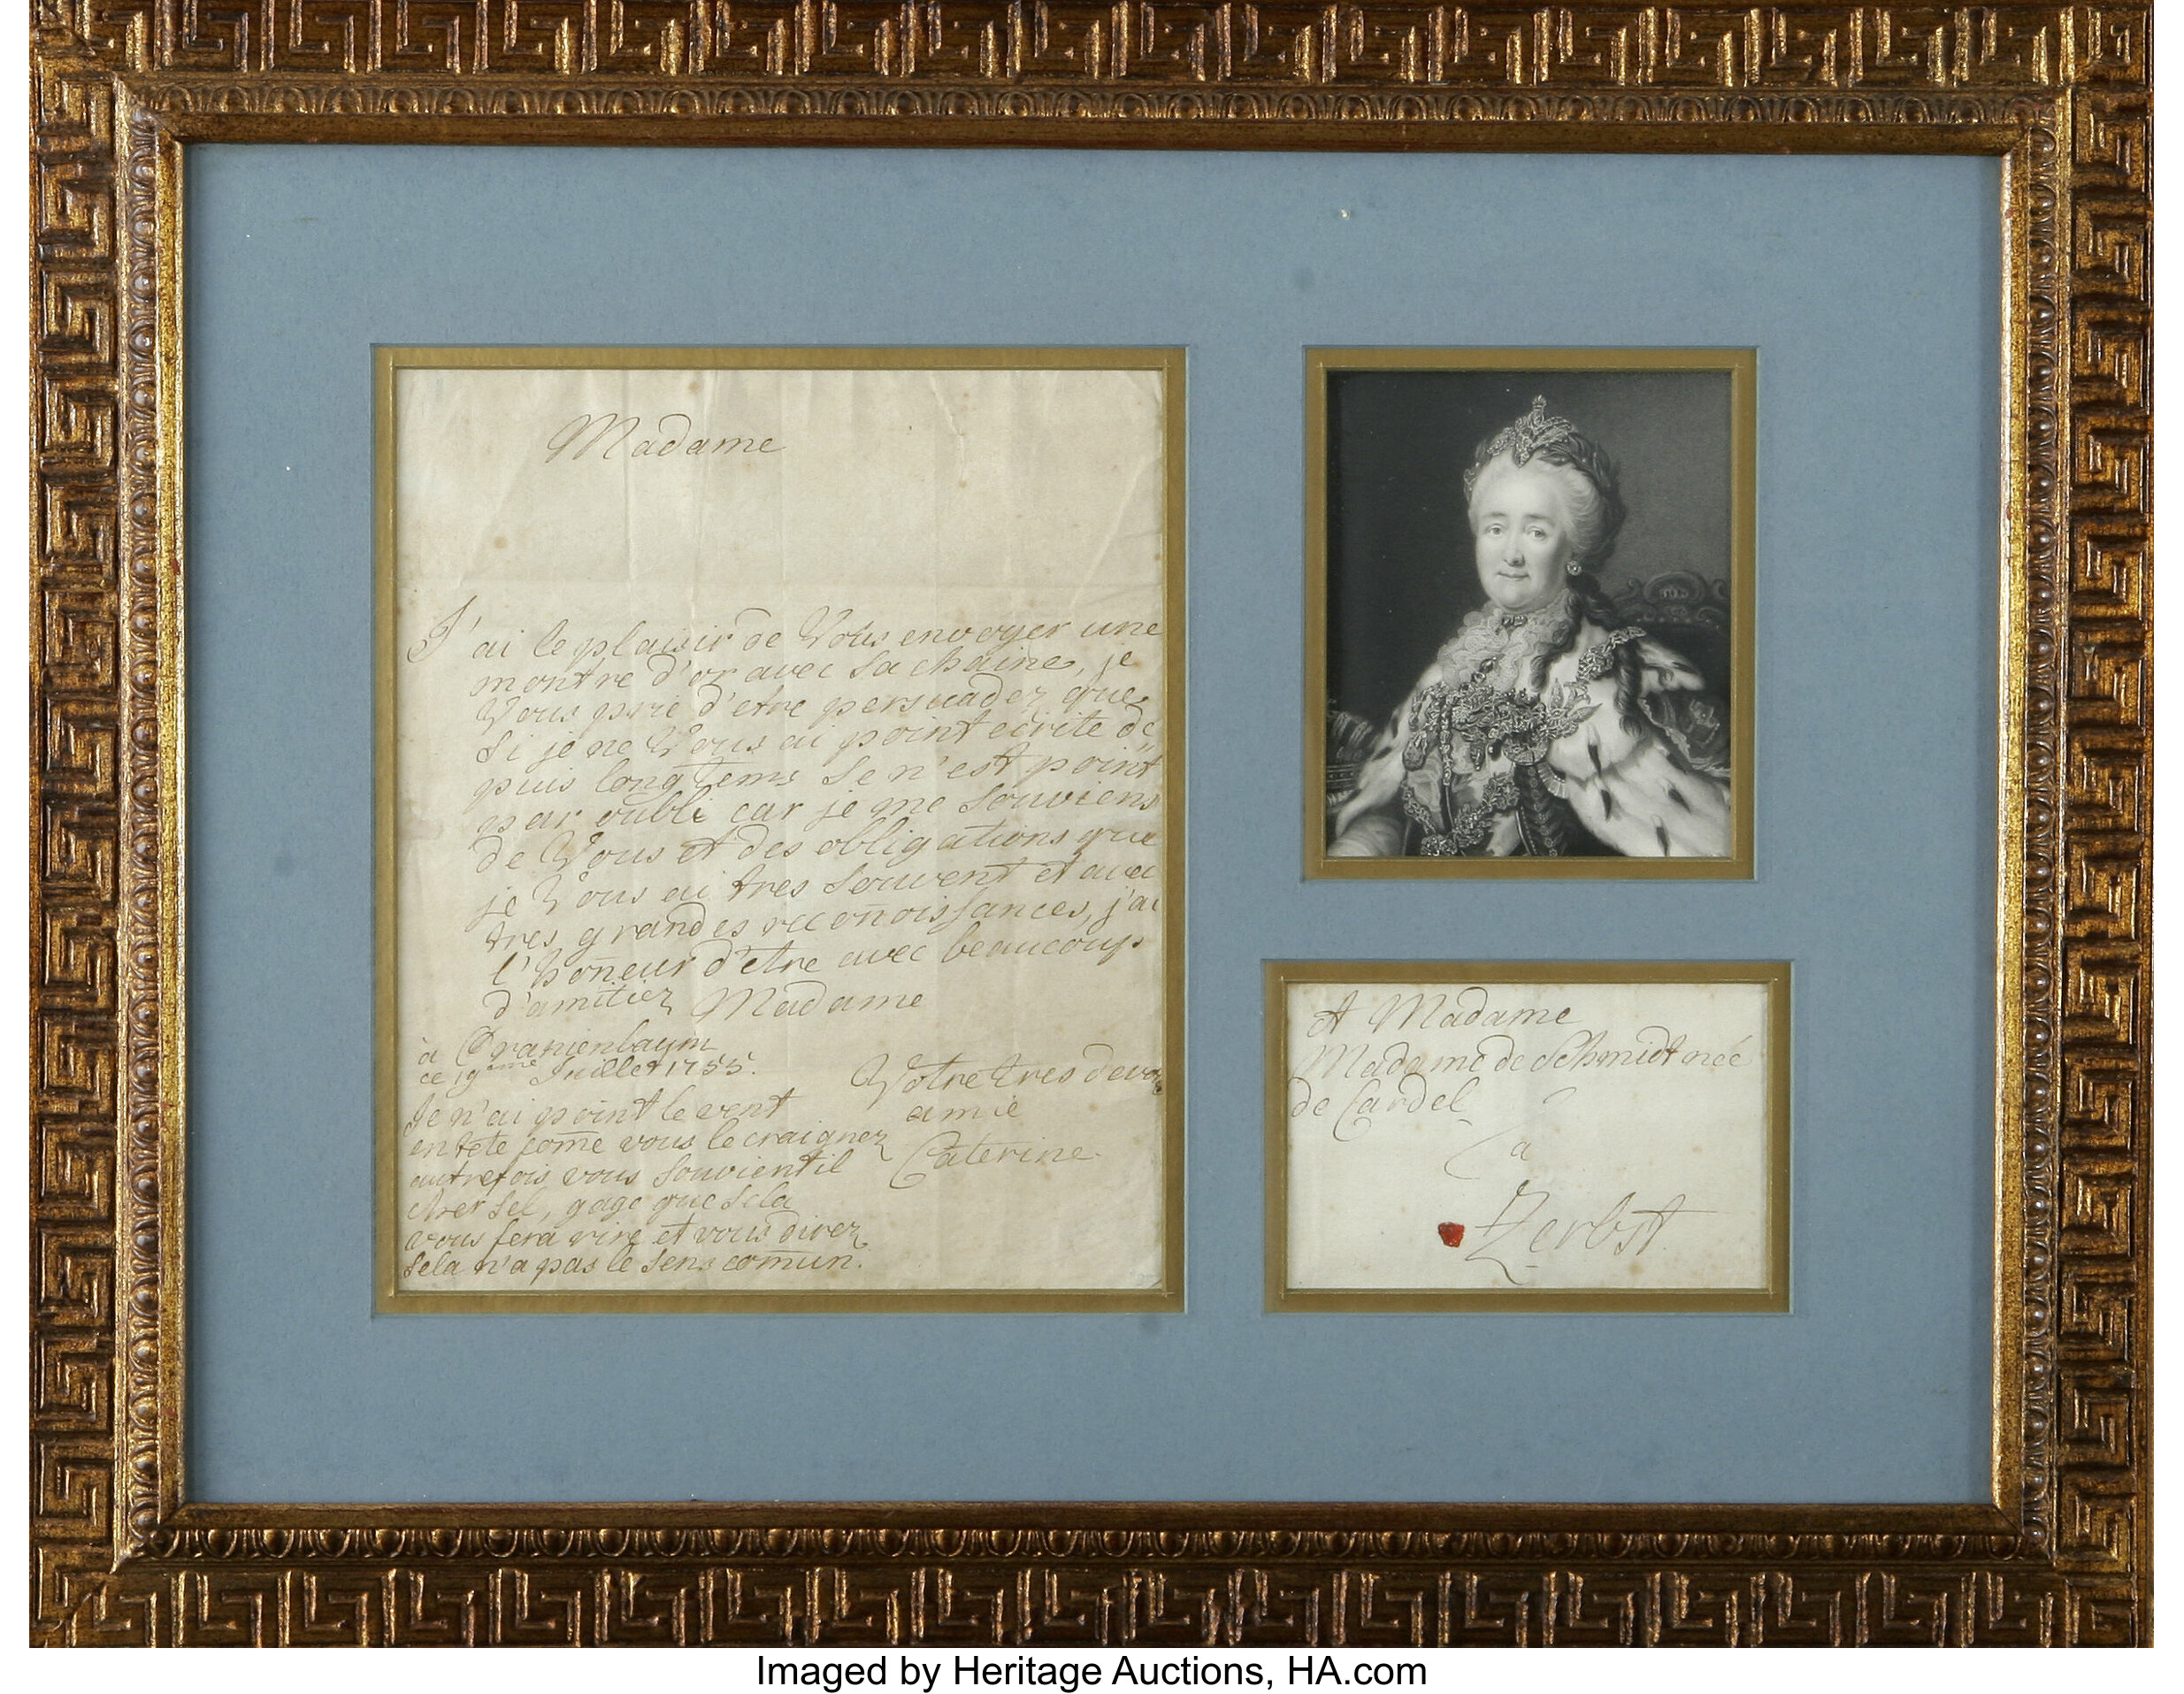 Madame
J'ai le plaisir de Vous envoyer une
montre d'or avec sa chaine, je
Vous prie d'etre persuadez que
si je ne Vous ai point ecrite de
puis longtems se n'est point
par oubli car je me souviens
de Vous et des obligations que
je Vous ai tres souvent et avec
tres grandes reconoissances, j'ai
l'honeur d'etre avec beaucoup
d'amitiez Madame
à Oranienbaum
ce 19eme Juillet 1755.
Votre tres devo
amie
Caterine.
Je n'ai point le vent
en tete come vous le craignez
autrefois vous souvient il
cher sel, gage que sela
vous fera rire et vous direz
sela n'a pas le sens comun.
A Madame
Madame de Schmidt née
de Cardel
a
Zerbst
Imaged by Heritage Auctions, HA.com